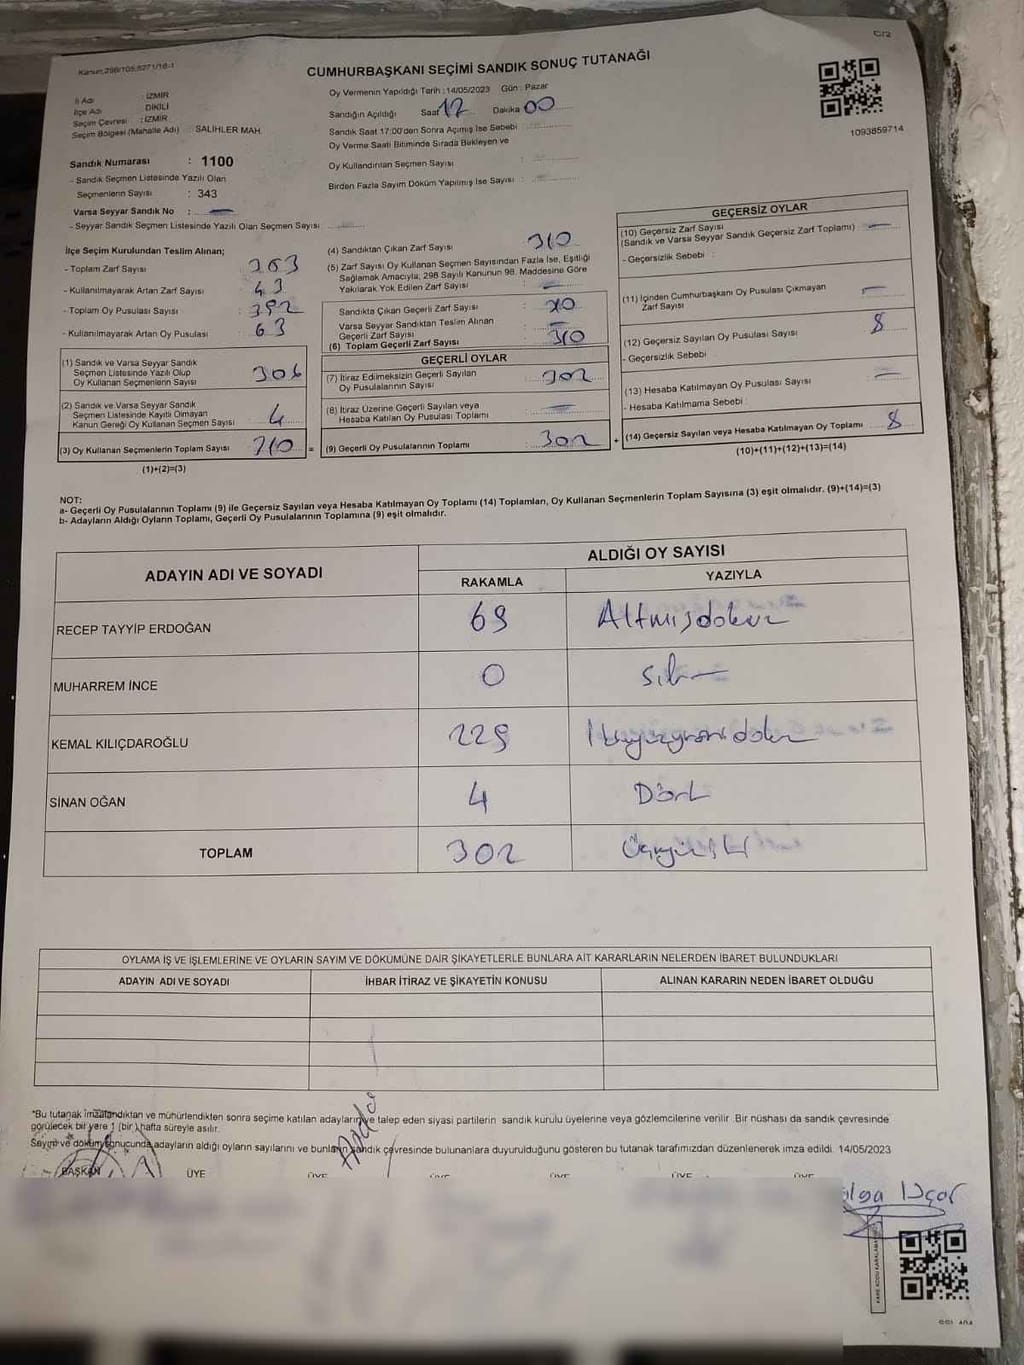 C/2
Kanun:298/105,6271/16-1
CUMHURBAŞKANI SEÇİMİ SANDIK SONUÇ TUTANAĞI
İl Adı : İZMİR
İlçe Adı : DİKİLİ
Seçim Çevresi : İZMİR
Seçim Bölgesi (Mahalle Adı) : SALİHLER MAH.
Oy Vermenin Yapıldığı Tarih :14/05/2023 Gün : Pazar
Sandığın Açıldığı Saat 17 Dakika 00
Sandık Saat 17:00'den Sonra Açmış İse Sebebi
Oy Verme Saati Bitiminde Sırada Bekleyen ve
Oy Kullandırılan Seçmen Sayısı
Birden Fazla Sayım Döküm Yapılmış İse Sayısı
1093859714
Sandık Numarası : 1100
- Sandık Seçmen Listesinde Yazılı Olan
Seçmenlerin Sayısı : 343
Varsa Seyyar Sandık No : —
- Seyyar Sandık Seçmen Listesinde Yazılı Olan Seçmen Sayısı
İlçe Seçim Kurulundan Teslim Alınan;
- Toplam Zarf Sayısı 353
- Kullanılmayarak Artan Zarf Sayısı 43
- Toplam Oy Pusulası Sayısı
- Kullanılmayarak Artan Oy Pusulası 63
(1) Sandık ve Varsa Seyyar Sandık
Seçmen Listesinde Yazılı Olup
Oy Kullanan Seçmenlerin Sayısı 306
(2) Sandık ve Varsa Seyyar Sandık
Seçmen Listesinde Kayıtlı Olmayan
Kanun Gereği Oy Kullanan Seçmen Sayısı 4
(3) Oy Kullanan Seçmenlerin Toplam Sayısı 310 =
(1)+(2)=(3)
(4) Sandıktan Çıkan Zarf Sayısı 310
(5) Zarf Sayısı Oy Kullanan Seçmen Sayısından Fazla İse, Eşitliği
Sağlamak Amacıyla, 298 Sayılı Kanunun 98. Maddesine Göre
Yakılarak Yok Edilen Zarf Sayısı —
Sandıkta Çıkan Geçerli Zarf Sayısı
Varsa Seyyar Sandıktan Teslim Alınan
Geçerli Zarf Sayısı —
(6) Toplam Geçerli Zarf Sayısı 310
GEÇERLİ OYLAR
(7) İtiraz Edilmeksizin Geçerli Sayılan
Oy Pusulalarının Sayısı 302
(8) İtiraz Üzerine Geçerli Sayılan veya
Hesaba Katılan Oy Pusulası Toplamı —
(9) Geçerli Oy Pusulalarının Toplamı 302 +
GEÇERSİZ OYLAR
(10) Geçersiz Zarf Sayısı
(Sandık ve Varsa Seyyar Sandık Geçersiz Zarf Toplamı) —
- Geçersizlik Sebebi :
(11) İçinden Cumhurbaşkanı Oy Pusulası Çıkmayan
Zarf Sayısı —
(12) Geçersiz Sayılan Oy Pusulası Sayısı 8
- Geçersizlik Sebebi
(13) Hesaba Katılmayan Oy Pusulası Sayısı —
- Hesaba Katılmama Sebebi :
(14) Geçersiz Sayılan veya Hesaba Katılmayan Oy Toplamı 8
(10)+(11)+(12)+(13)=(14)
NOT:
a- Geçerli Oy Pusulalarının Toplamı (9) ile Geçersiz Sayılan veya Hesaba Katılmayan Oy Toplamı (14) Toplamları, Oy Kullanan Seçmenlerin Toplam Sayısına (3) eşit olmalıdır. (9)+(14)=(3)
b- Adayların Aldığı Oyların Toplamı, Geçerli Oy Pusulalarının Toplamına (9) eşit olmalıdır.
ADAYIN ADI VE SOYADI ALDIĞI OY SAYISI
RAKAMLA YAZIYLA
RECEP TAYYİP ERDOĞAN 69 Altmışdokuz
MUHARREM İNCE 0 Sıfır
KEMAL KILIÇDAROĞLU 229 İkiyüzyirmidokuz
SİNAN OĞAN 4 Dört
TOPLAM 302 Üçyüziki
OYLAMA İŞ VE İŞLEMLERİNE VE OYLARIN SAYIM VE DÖKÜMÜNE DAİR ŞİKAYETLERLE BUNLARA AİT KARARLARIN NELERDEN İBARET BULUNDUKLARI
ADAYIN ADI VE SOYADI İHBAR İTİRAZ VE ŞİKAYETİN KONUSU ALINAN KARARIN NEDEN İBARET OLDUĞU
*Bu tutanak imzalandıktan ve mühürlendikten sonra seçime katılan adayların ve talep eden siyasi partilerin sandık kurulu üyelerine veya gözlemcilerine verilir. Bir nüshası da sandık çevresinde
görülecek bir yere 1 (bir) hafta süreyle asılır.
Sayım ve döküm sonucunda adayların aldığı oyların sayılarını ve bunların sandık çevresinde bulunanlara duyurulduğunu gösteren bu tutanak tarafımızdan düzenlenerek imza edildi. 14/05/2023
BAŞKAN ÜYE ÜYE ÜYE ÜYE ÜYE
KARE KODU KARALAMAYINIZ